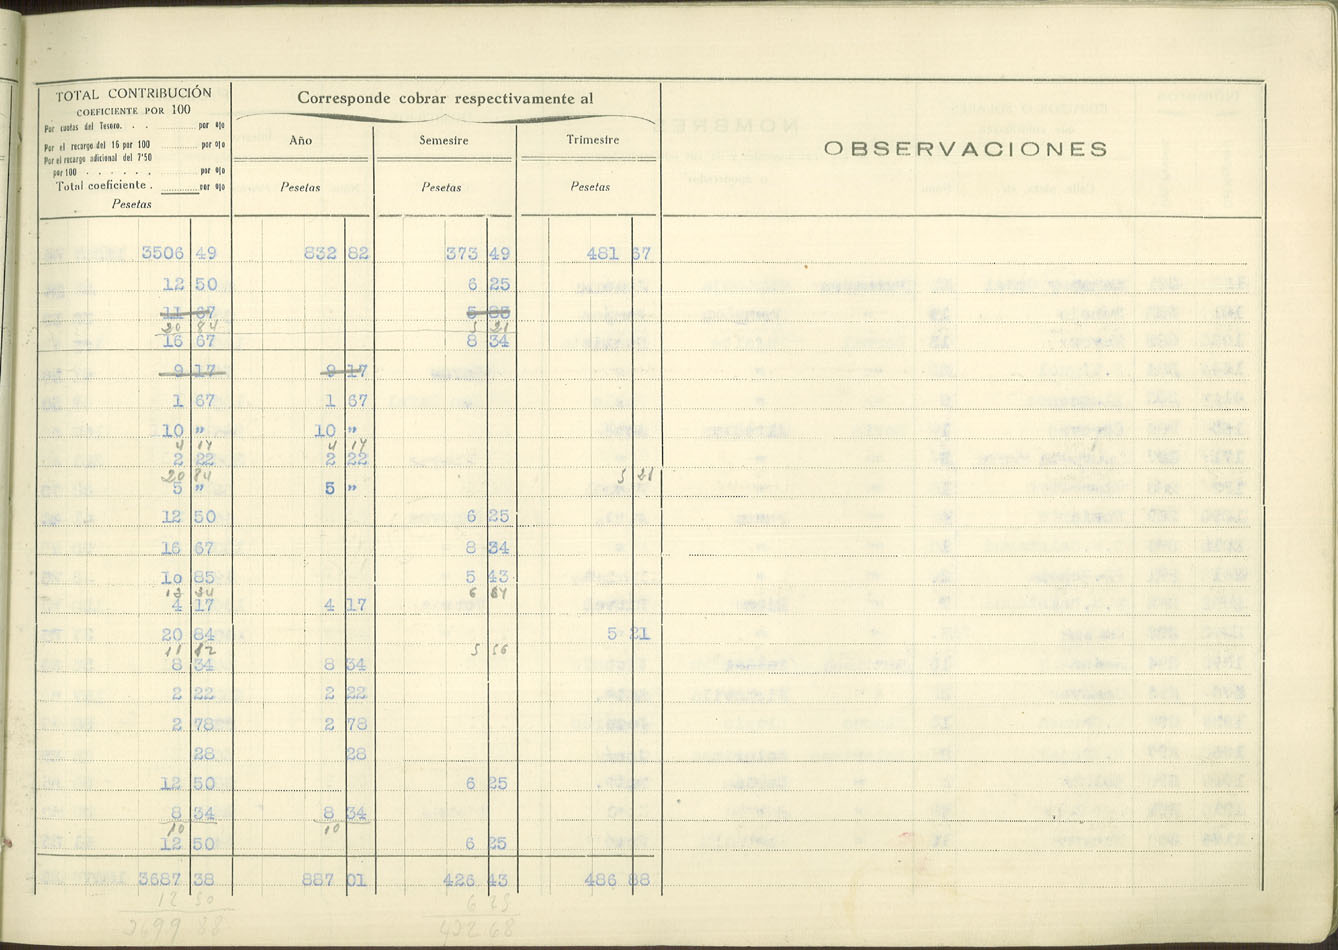 TOTAL CONTRIBUCIÓN
COEFICIENTE POR 100
Por cuotas del Tesoro. . . por o|o
Por el recargo del 16 por 100 por o|o
Por el recargo adicional del 7'50
por 100 . . . . . . por o|o
Total coeficiente . por o|o
Pesetas
Corresponde cobrar respectivamente al
Año Semestre Trimestre
Pesetas Pesetas Pesetas
OBSERVACIONES
3506 49 832 82 373 49 481 67
12 50 6 25
11 67 5 83
20 84 5 21
16 67 8 34
9 17 9 17
1 67 1 67
10 " 10 "
4 17 4 17
2 22 2 22
20 84 5 21
5 " 5 "
12 50 6 25
16 67 8 34
10 85 5 43
4 17 4 17
20 84 5 21
5 56
8 34 8 34
2 22 2 22
2 78 2 78
28 28
12 50 6 25
8 34 8 34
10 10
12 50 6 25
3687 38 887 01 426 43 486 88
12 50 6 25
3699 88 432 68